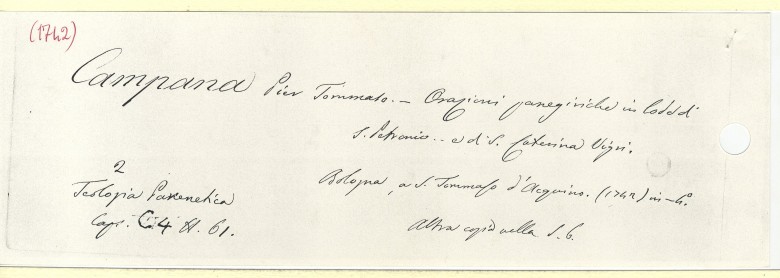 (1742)
Campana Pier Tommaso. — Orazioni panegiriche in lode di
S. Petronio - e di S. Caterina Vigri.
Bologna, a S. Tommaso d'Acquino. (1742) in-4.
2
Teologia Parenetica
Caps. C4 N. 61.
Altra copia nella S. 6.